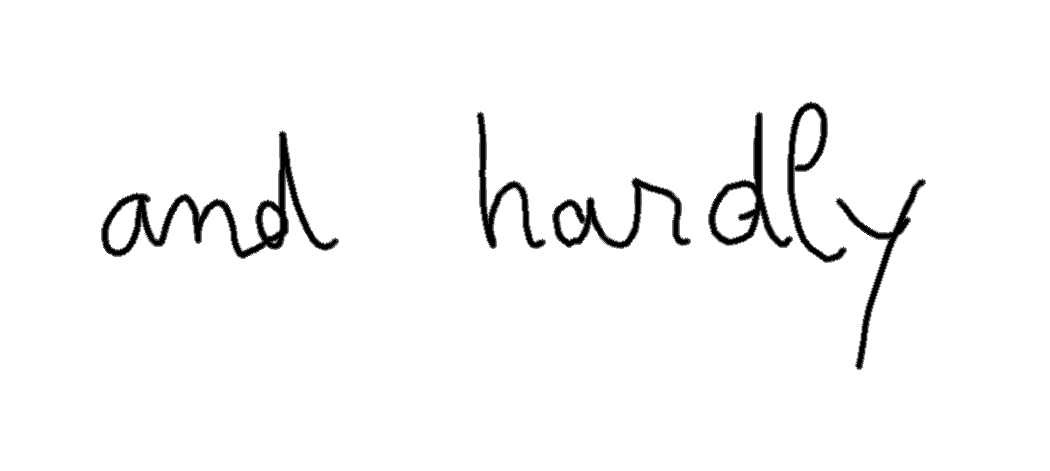 and hardly